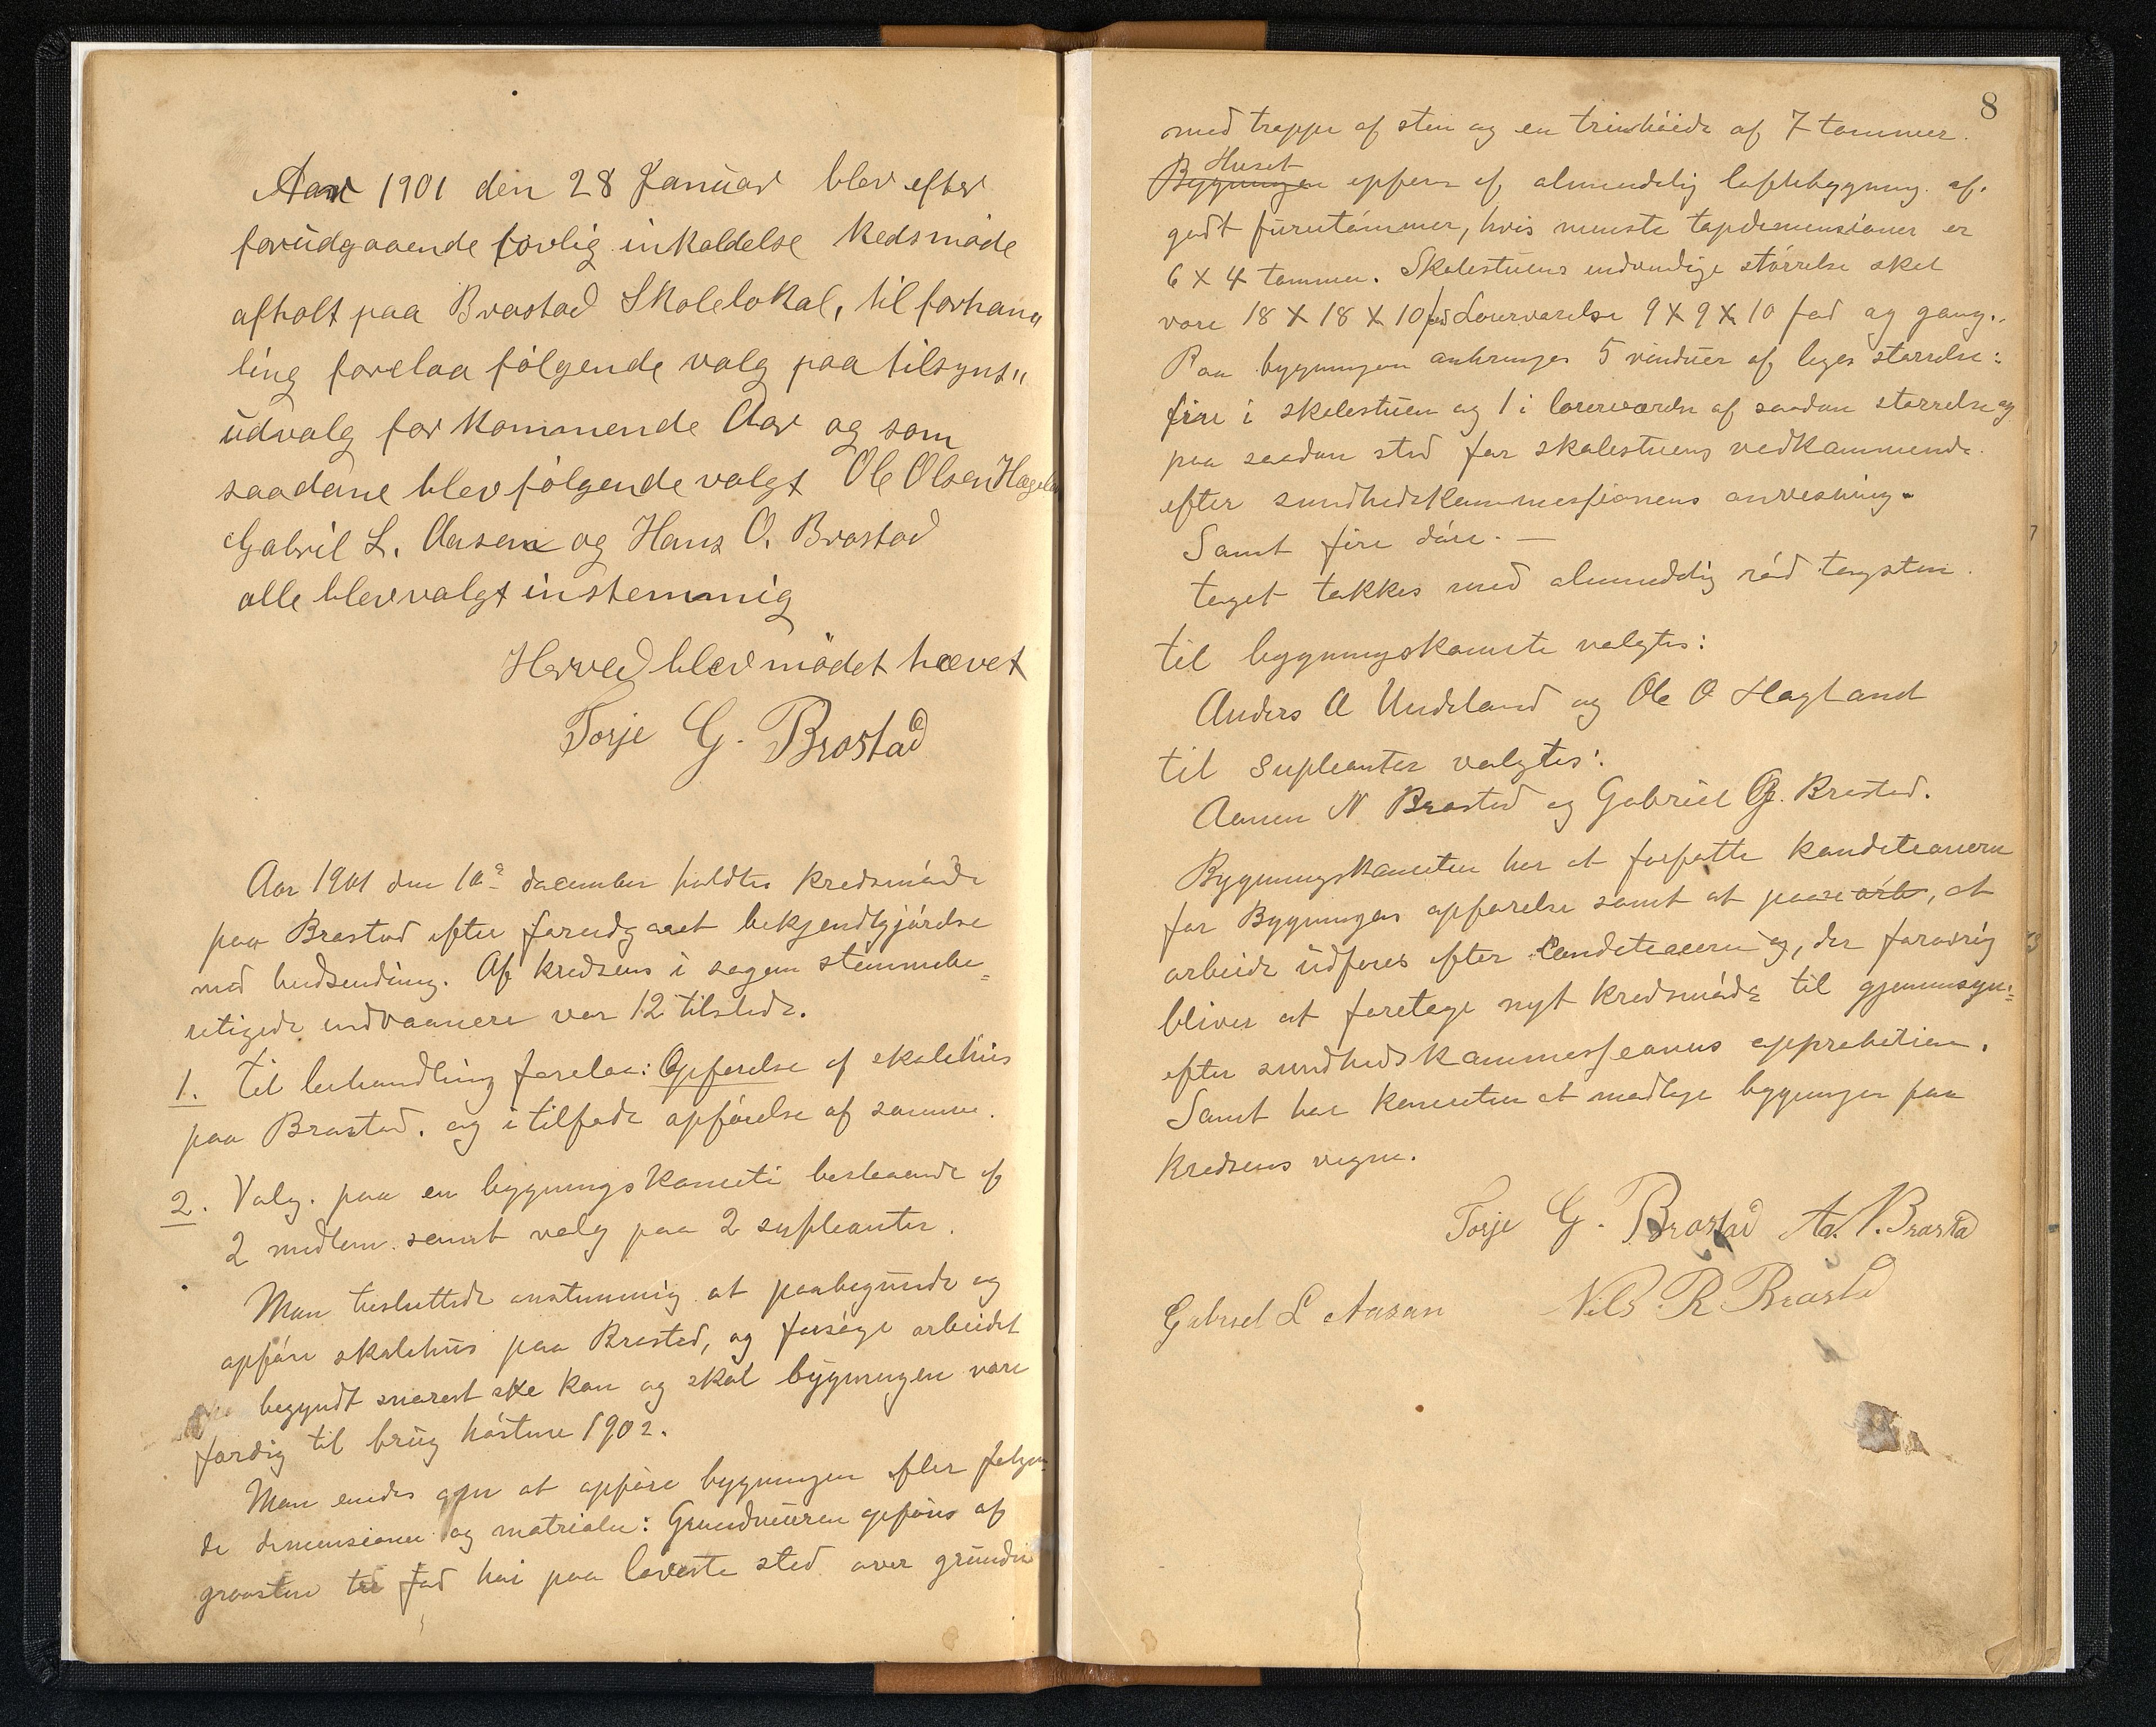 Aar 1901 den 28 Januar blev efter
forudgaaende lovlig inkaldelse Kedsmøde
afholt paa Brastad Skolelokal, til forhand
ling forelaa følgende valg paa tilsyns„
udvalg for Kommende Aar og som
saadane blev følgende valgt Ole Olsen Hagelan
Gabril L. Aasen og Hans O. Brastad
alle blev valgt instemmig
Herved blev mödet hævet
Torje G. Brastad
Aar 1901 den 10de december holdtes Kredsmøde
paa Brastad efter forudgaaet bekjendtgjørelse
med budsending. Af kredsens i sagen stemmebe=
retigede indvaanere var 12 tilstede.
1. Til behandling forelaa: Opførelse af skolehus
paa Brastad. og i tilfæde opførelse af samme.
2. Valg. paa en bygningskomite bestaaende af
2 medlem. samt valg paa 2 supleanter.
Man besluttede enstemmig at paabegynde og
opføre skolehus paa Brastad, og forsøge arbeidet
begyndt snarest ske kan og skal bygningen være
færdig til brug høstne 1902.
Man enedes om at opføre bygningen efter følgen
de dimensioner og matrialer: Grundmuren opføris af
graasten to fod høi paa laveste sted over grunden
8
med trappe af sten og en trinhøide af 7 tommer.
Huset
Bygningen opføres af almindelig laftebygning af.
godt furutømmer, hvis minste topdimensioner er
6 X 4 tommer. Skolestuens indvendige størrelse skal
være 18 X 18 X 10 fod Lærerværelse 9 X 9 X 10 fod og gang..
Paa bygningen anbringes 5 vinduer af liges størrelse:
fire i skolestuen og 1 i lærerværelse af saadan størrelse og
paa saadan sted for skolestuens vedkommende.
efter sundhedskommessionens anvesning.
Samt fire døre. —
taget tækkes med almindelig rød tagsten.
til bygningskomite valgtes:
Anders A Undeland og Ole O Hagland
til Supleanter valgtes:
Aanen N Brastad og Gabriel G. Brastad.
Bygningskomiten har at forfatte konditionern
for Bygningens opførelse samt at paase arb, at
arbeide udføres efter Conditionern og, der forøvrig
bliver at foretage nyt kredsmøde til gjennemsyn:=
efter sundhedskommessionens approbation.
Samt har komiten at modtage bygningen paa
kredsens vegne.
Torje G. Brastad Aa. N. Brasta
Gabriel L Aasen Nils R Brasta